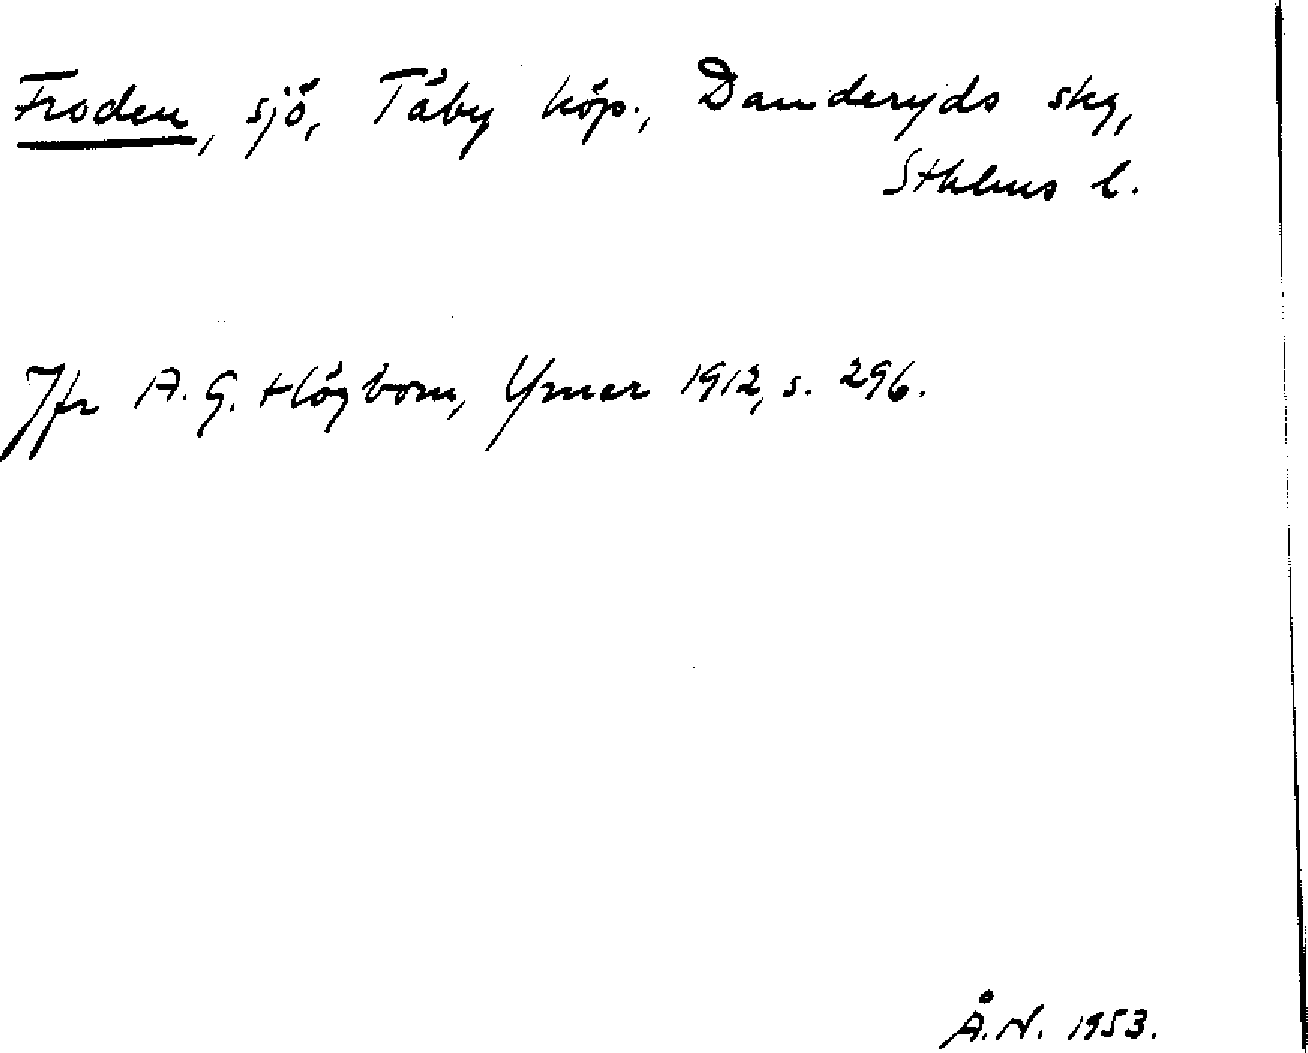 Froden, sjö, Täby köp., Danderyds skg,
Sthlms l.
Jfr A. G. Högbom, Ymer 1912, s. 296.
Å.N. 1953.